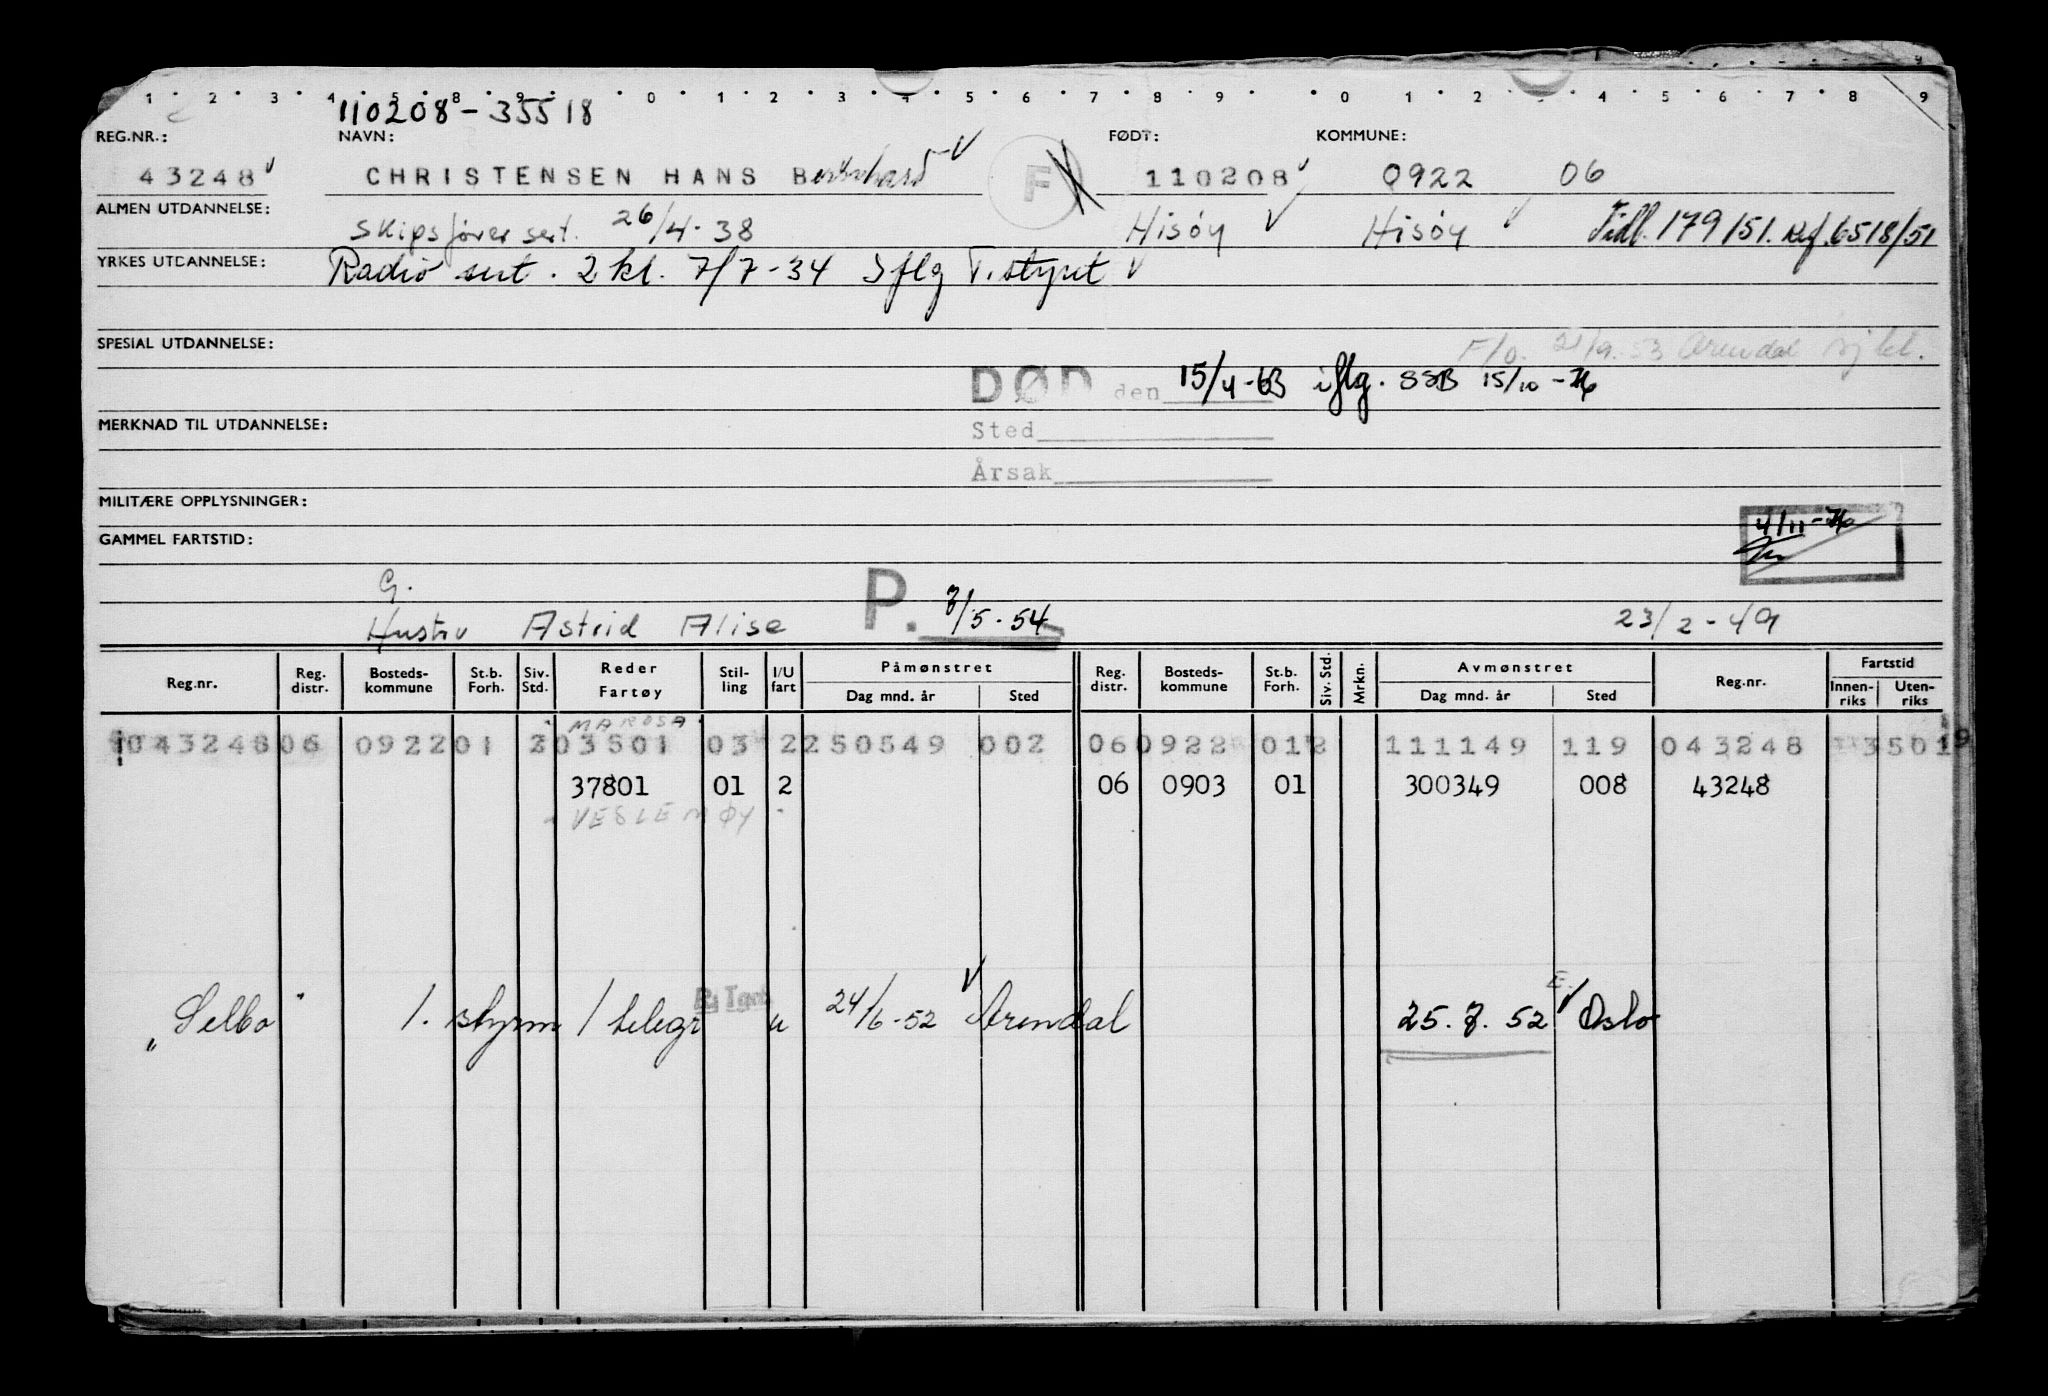 1 2 3 4 5 8 9 0 1 2 3 4 5 6 7 8 9 0 1 2 3 4 5 6 7 8 9
110208-35518
REG.NR.: NAVN: FØDT: KOMMUNE:
43248 CHRISTENSEN HANS Bernhard F 110208 0922 06
ALMEN UTDANNELSE: Skipsfører sert. 26/4-38 Hisøy Hisøy Tidl. 179/51. Ref. 6518/51
YRKES UTDANNELSE: Radio sert. 2 kl. 7/7-34 Iflg T. styret
SPESIAL UTDANNELSE: F/O. 21/9-53 Arendal
DØD den 15/4-63 iflg. SSB 15/10-76
MERKNAD TIL UTDANNELSE: Sted
Årsak
MILITÆRE OPPLYSNINGER:
4/11-76
GAMMEL FARTSTID:
G.
Hustru Astrid Alise P. 3/5-54 23/2-49
Reg.nr. Reg. distr. Bosteds-kommune St.b. Forh. Siv. Std. Reder Fartøy Stil-ling I/U fart Påmønstret Dag mnd. år Sted Reg. distr. Bosteds-kommune St.b. Forh. Siv. Std. Mrkn. Avmønstret Dag mnd. år Sted Reg.nr. Fartstid Innen-riks Uten-riks
MAROSA
043248 06 0922 01 2 03501 03 2 250549 002 06 0922 01 2 111149 119 043248 3501
37801 01 2 06 0903 01 300349 008 43248
VESLEMØY
"Selbo" 1. styrm / telegr u 24/6-52 Arendal 25.7.52 Oslo